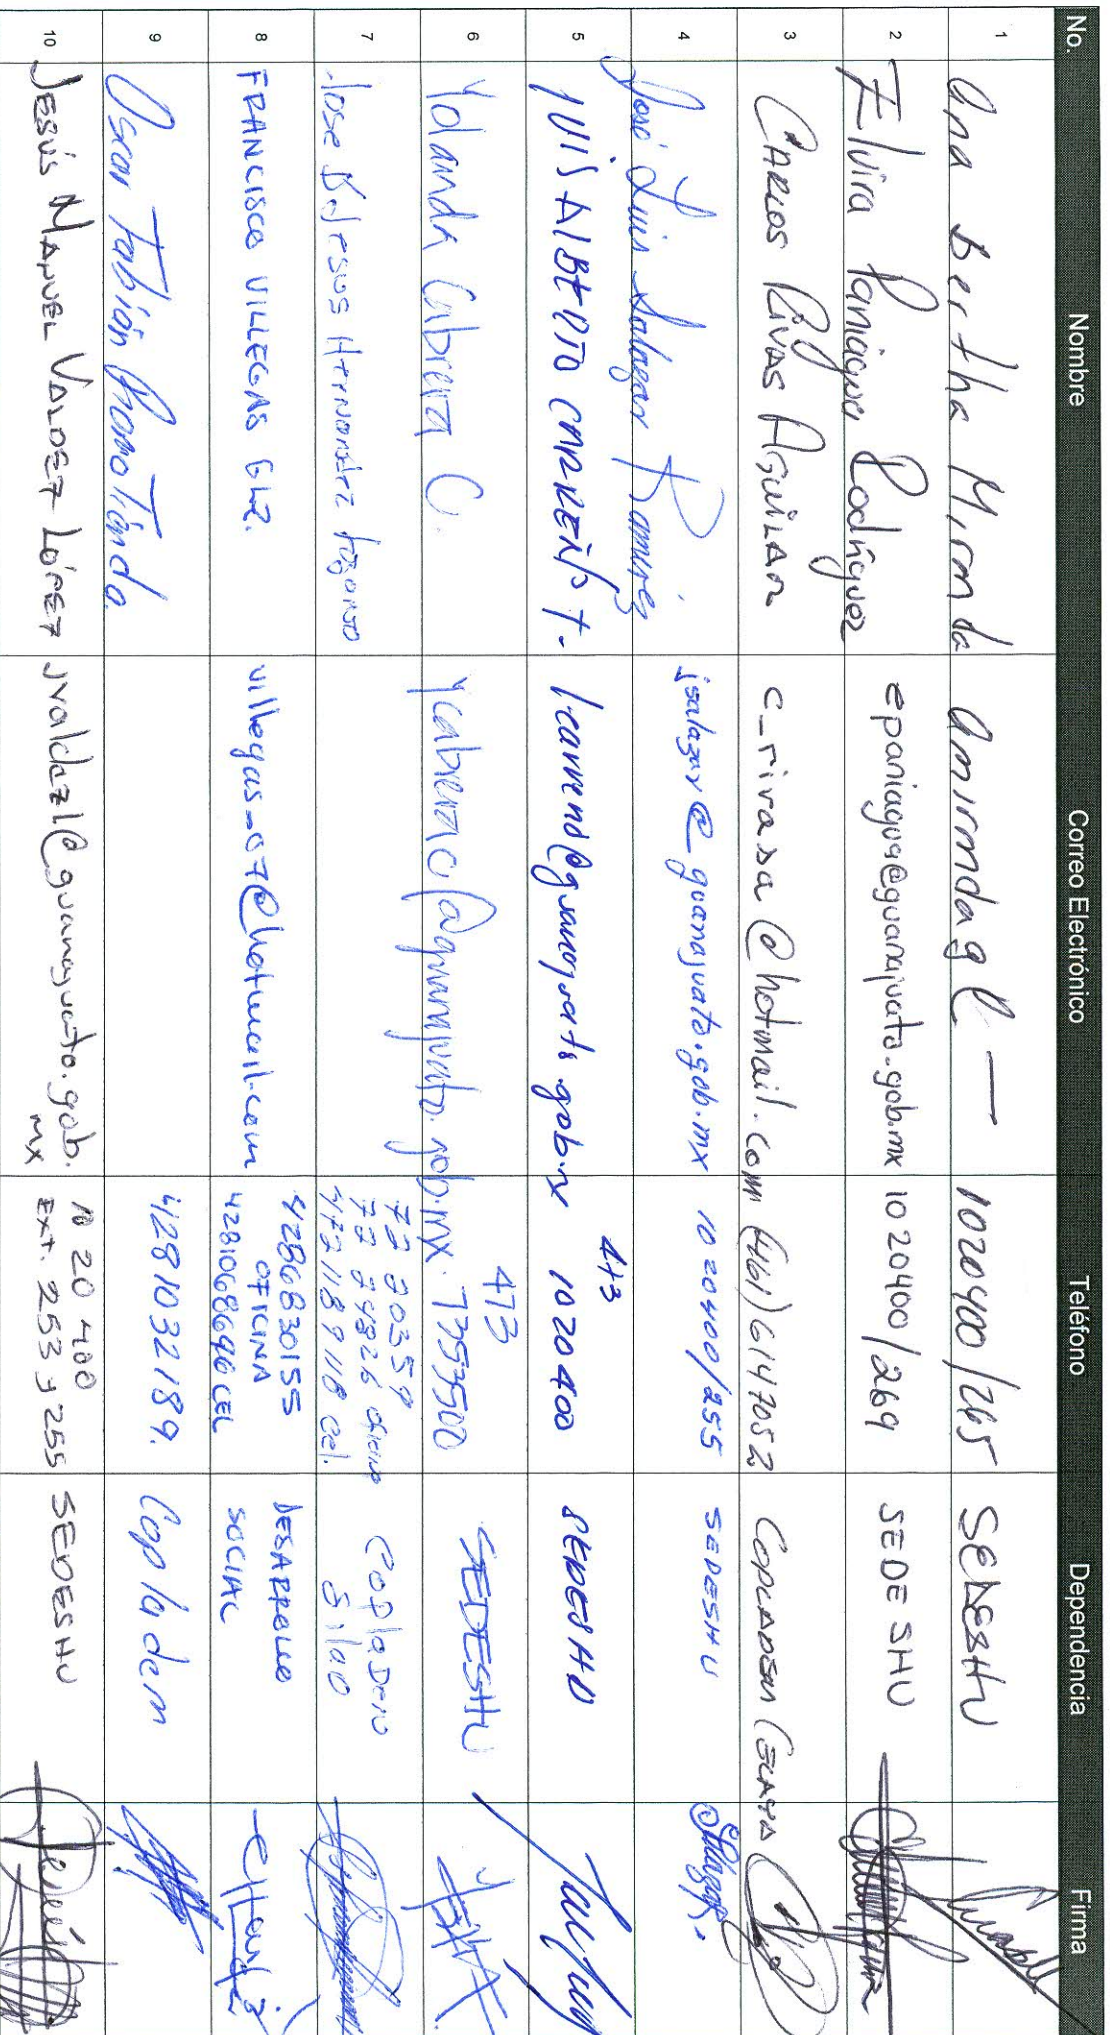 No. Nombre Correo Electrónico Teléfono Dependencia Firma
1 Ana Bertha Miranda amirandag@— 1020400/265 SEDESHU
2 Elvira Paniagua Rodríguez epaniagua@guanajuato.gob.mx 1020400/269 SEDESHU
3 CARLOS RIVAS AGUILAR c_rivasa@hotmail.com (461)6147052 COPLADEM CELAYA
4 José Luis Salazar Ramírez jsalazar@guanajuato.gob.mx 1020400/255 SEDESHU
5 LUIS ALBERTO CARREÑO T. lcarreno@guanajuato.gob.mx 473 1020400 SEDESHU
6 Yolanda Cabrera C. ycabrerac@guanajuato.gob.mx. 473 7353500 SEDESHU
7 Jose D Jesus Hernandez 72 20359
72 24826 oficina
472 1189118 cel.
Copladem
Silao
8 FRANCISCO VILLEGAS GLZ. villegas_07@hotmail.com 4286830155
OFICINA
4281068696 CEL
DESARROLLO
SOCIAL
9 Oscar Fabián 4281032189. Copladem
10 JESÚS MANUEL VALDEZ LÓPEZ jvaldezl@guanajuato.gob.
mx
10 20 400
EXT. 253 y 255
SEDESHU